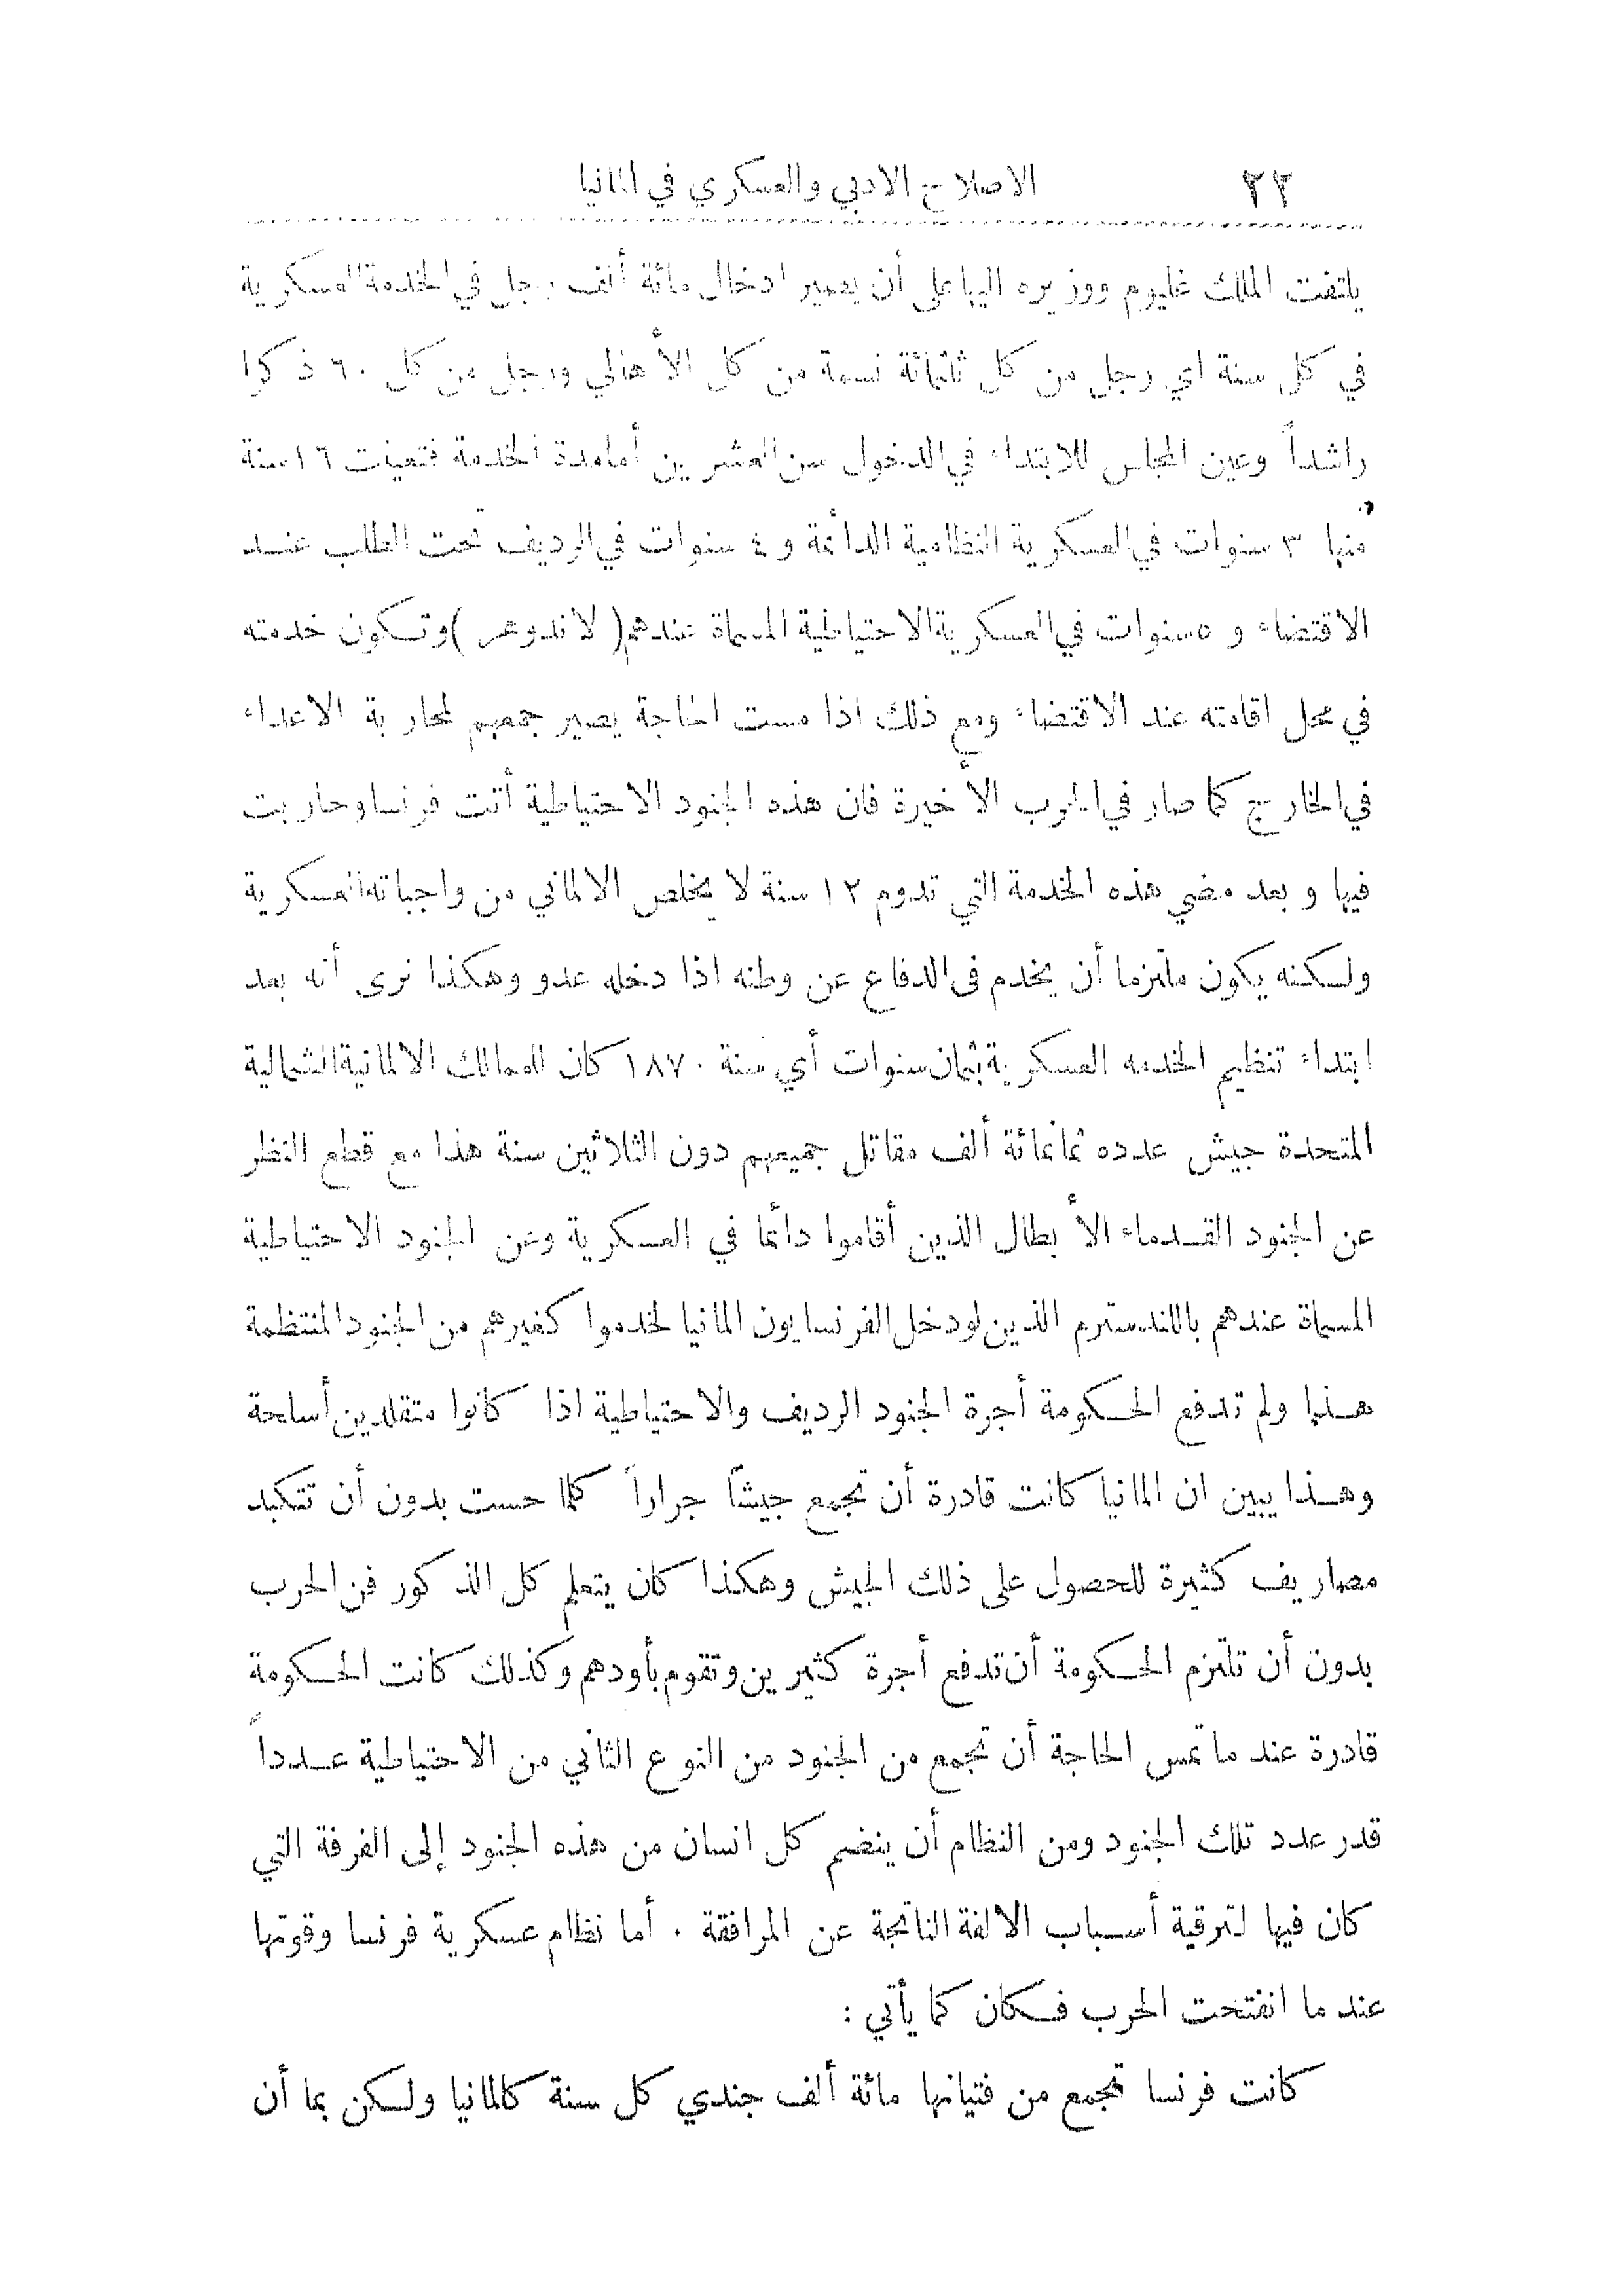 ٢٢ الاصلاح الادبي والعسكري في المانيا
يلتفت الملك غليوم ووزيره اليها على أن يصير ادخال مائة ألف رجل في الخدمة العسكرية
في كل سنة اي رجل من كل ثلثمائة نسمة من كل الأهالي ورجل من كل ٦٠ ذكرا
راشداً وعين المجلس للابتداء في الدخول سن العشرين أما مدة الخدمة فتعينت ١٦ سنة
منها ٣ سنوات في العسكرية النظامية الدائمة و ٤ سنوات في الرديف تحت الطلب عنــد
الاقتضاء و ٥ سنوات في العسكرية الاحتياطية المسماة عندهم ( لاندوهر ) وتــكون خدمته
في محل اقامته عند الاقتضاء ومع ذلك اذا مست الحاجة يصير جمعهم لمحاربة الاعداء
في الخارج كما صار في الحرب الأخيرة فان هذه الجنود الاحتياطية أتت فرنسا وحاربت
فيها وبعد مضي هذه الخدمة التي تدوم ١٢ سنة لا يخلص الالماني من واجباته العسكرية
ولــكنه يكون ملتزما أن يخدم فى الدفاع عن وطنه اذا دخله عدو وهكذا نرى أنه بعد
ابتداء تنظيم الخدمه العسكرية بثمان سنوات أي سنة ١٨٧٠ كان للممالك الالمانية الشمالية
المتحدة جيش عدده ثمانمائة ألف مقاتل جميعهم دون الثلاثين سنة هذا مع قطع النظر
عن الجنود القــدماء الأبطال الذين أقاموا دائما في العسكرية وعن الجنود الاحتياطية
المسماة عندهم باللندسترم الذين لو دخل الفرنسايون المانيا لخدموا كغيرهم من الجنود المنتظمة
هــذا ولم تدفع الحــكومة أجرة الجنود الرديف والاحتياطية اذا كانوا متقلدين أسلحة
وهــذا يبين ان المانيا كانت قادرة أن تجمع جيشاً جراراً كلما حست بدون أن تتكبد
مصاريف كثيرة للحصول على ذلك الجيش وهكذا كان يتعلم كل الذكور فن الحرب
بدون أن تلتزم الحــكومة أن تدفع أجرة كثيرين وتقوم بأودهم وكذلك كانت الحــكومة
قادرة عند ما تمس الحاجة أن تجمع من الجنود من النوع الثاني من الاحتياطية عــدداً
قدر عدد تلك الجنود ومن النظام أن ينضم كل انسان من هذه الجنود إلى الفرقة التي
كان فيها لترقية أســباب الالفة الناتجة عن المرافقة . أما نظام عسكرية فرنسا وقوتها
عند ما انفتحت الحرب فــكان كما يأتي :
كانت فرنسا تجمع من فتيانها مائة ألف جندي كل سنة كالمانيا ولــكن بما أن